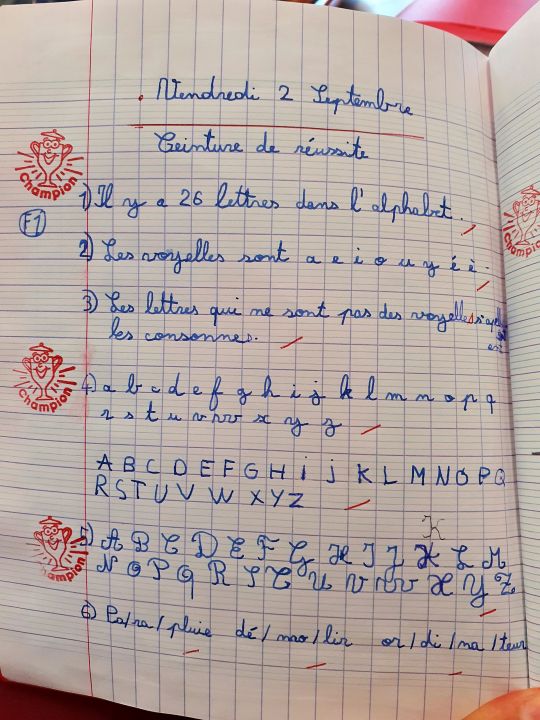 Vendredi 2 Septembre
Ceinture de réussite
Champion
1) Il y a 26 lettres dans l'alphabet.
F1
2) Les voyelles sont a e i o u y é è.
3) Les lettres qui ne sont pas des voyelles s'appellent
les consonnes.
Champion
4) a b c d e f g h i j k l m n o p q
r s t u v w x y z
A B C D E F G H i j K L M N O P Q
R S T U V W X Y Z
K
5) A B C D E F G H I J K L M
N O P Q R S T U V W X Y Z
Champion
6) Pa/ra/pluie dé/mo/lir or/di/na/teur